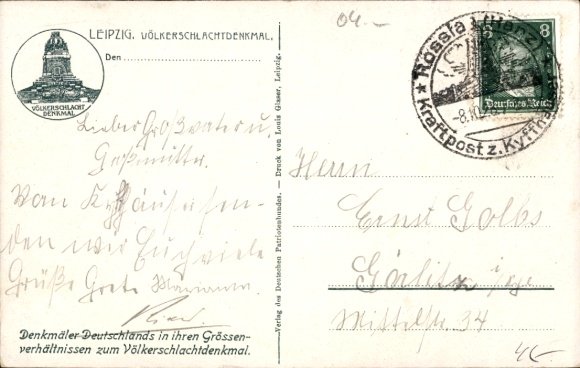 LEIPZIG. VÖLKERSCHLACHTDENKMAL.
Den
VÖLKERSCHLACHT
DENKMAL
Lieber Großvater u.
Großmutter.
Vom Kyffhäuser sen-
den wir Euch viele
Grüße Grete Marianne
Denkmäler Deutschlands in ihren Grössen-
verhältnissen zum Völkerschlachtdenkmal.
Verlag des Deutschen Patriotenbundes. - Druck von Louis Glaser, Leipzig.
04.-
Rossla (Harz)
-8.10
Kraftpost z. Kyffhä
8
Deutsches Reich
Herrn
Ernst Golbs
Görlitz
Mittelstr 34
4.-